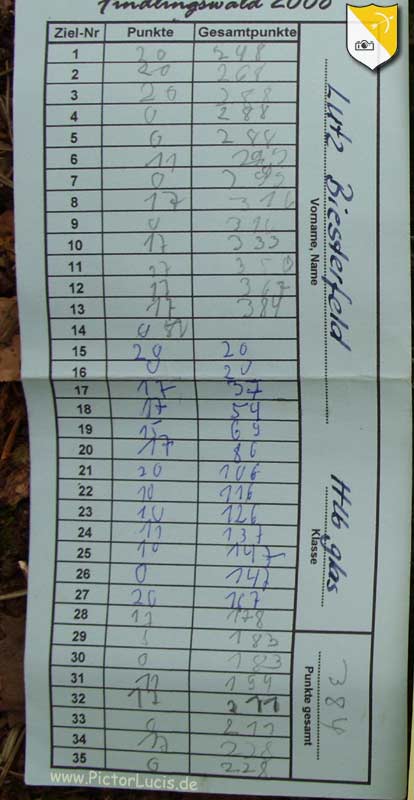 Findlingswald
Ziel-Nr Punkte Gesamtpunkte
1 20 248
2 20 268
3 20 288
4 0 288
5 0 288
6 11 299
7 0 299
8 17 316
9 0 316
10 17 333
11 17 350
12 17 367
13 17 384
14 0
15 20 20
16 0 20
17 17 37
18 17 54
19 15 69
20 17 86
21 20 106
22 10 116
23 10 126
24 11 137
25 10 147
26 0 147
27 20 167
28 11 178
29 5 183
30 0 183
31 11 194
32 17 211
33 0 211
34 17 228
35 0 228
Lutz Biesterfeld
Vorname, Name
Klasse
384
Punkte gesamt
www.PictorLucis.de